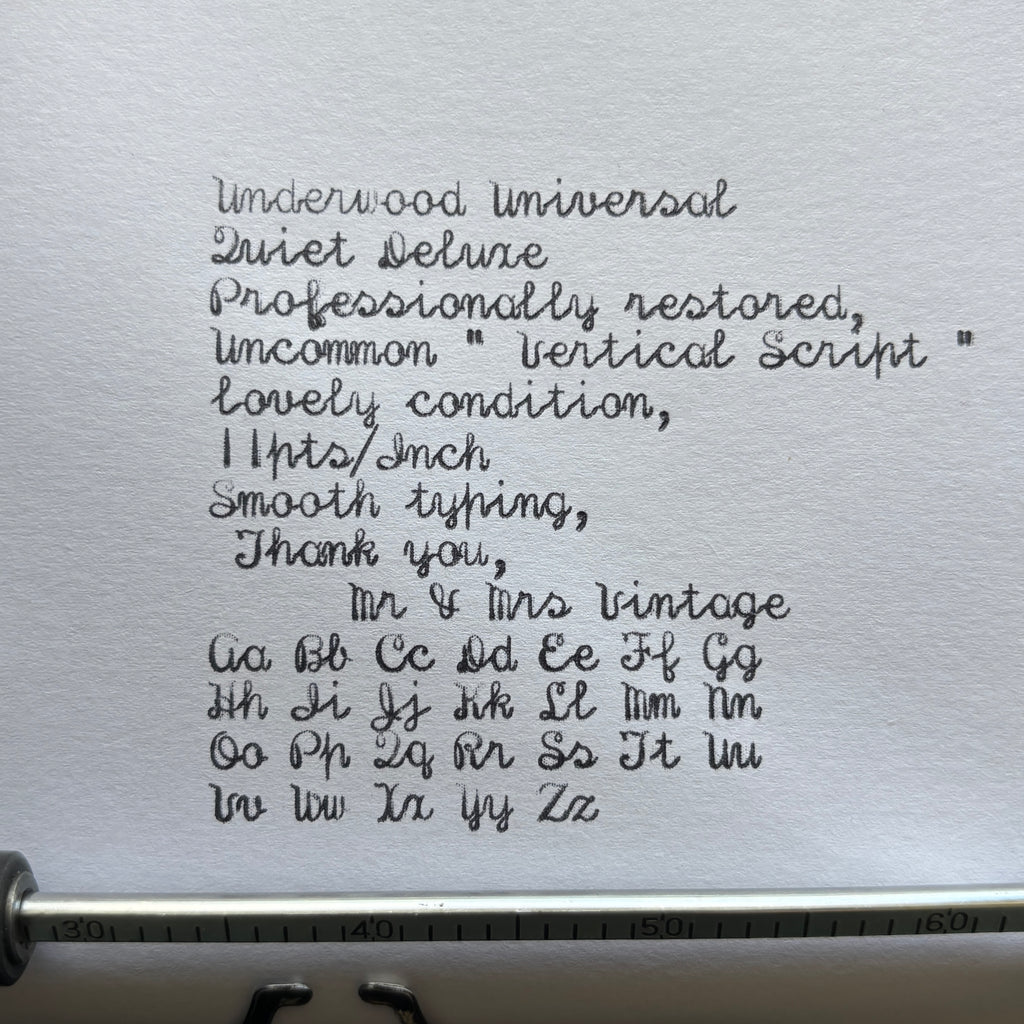 Underwood Universal
Quiet Deluxe
Professionally restored,
Uncommon " Vertical Script "
Lovely condition,
11pts/Inch
Smooth typing,
Thank you,
Mr & Mrs Vintage
Aa Bb Cc Dd Ee Ff Gg
Hh Ii Jj Kk Ll Mm Nn
Oo Pp Qq Rr Ss Tt Uu
Vv Ww Xx Yy Zz
30 40 50 60